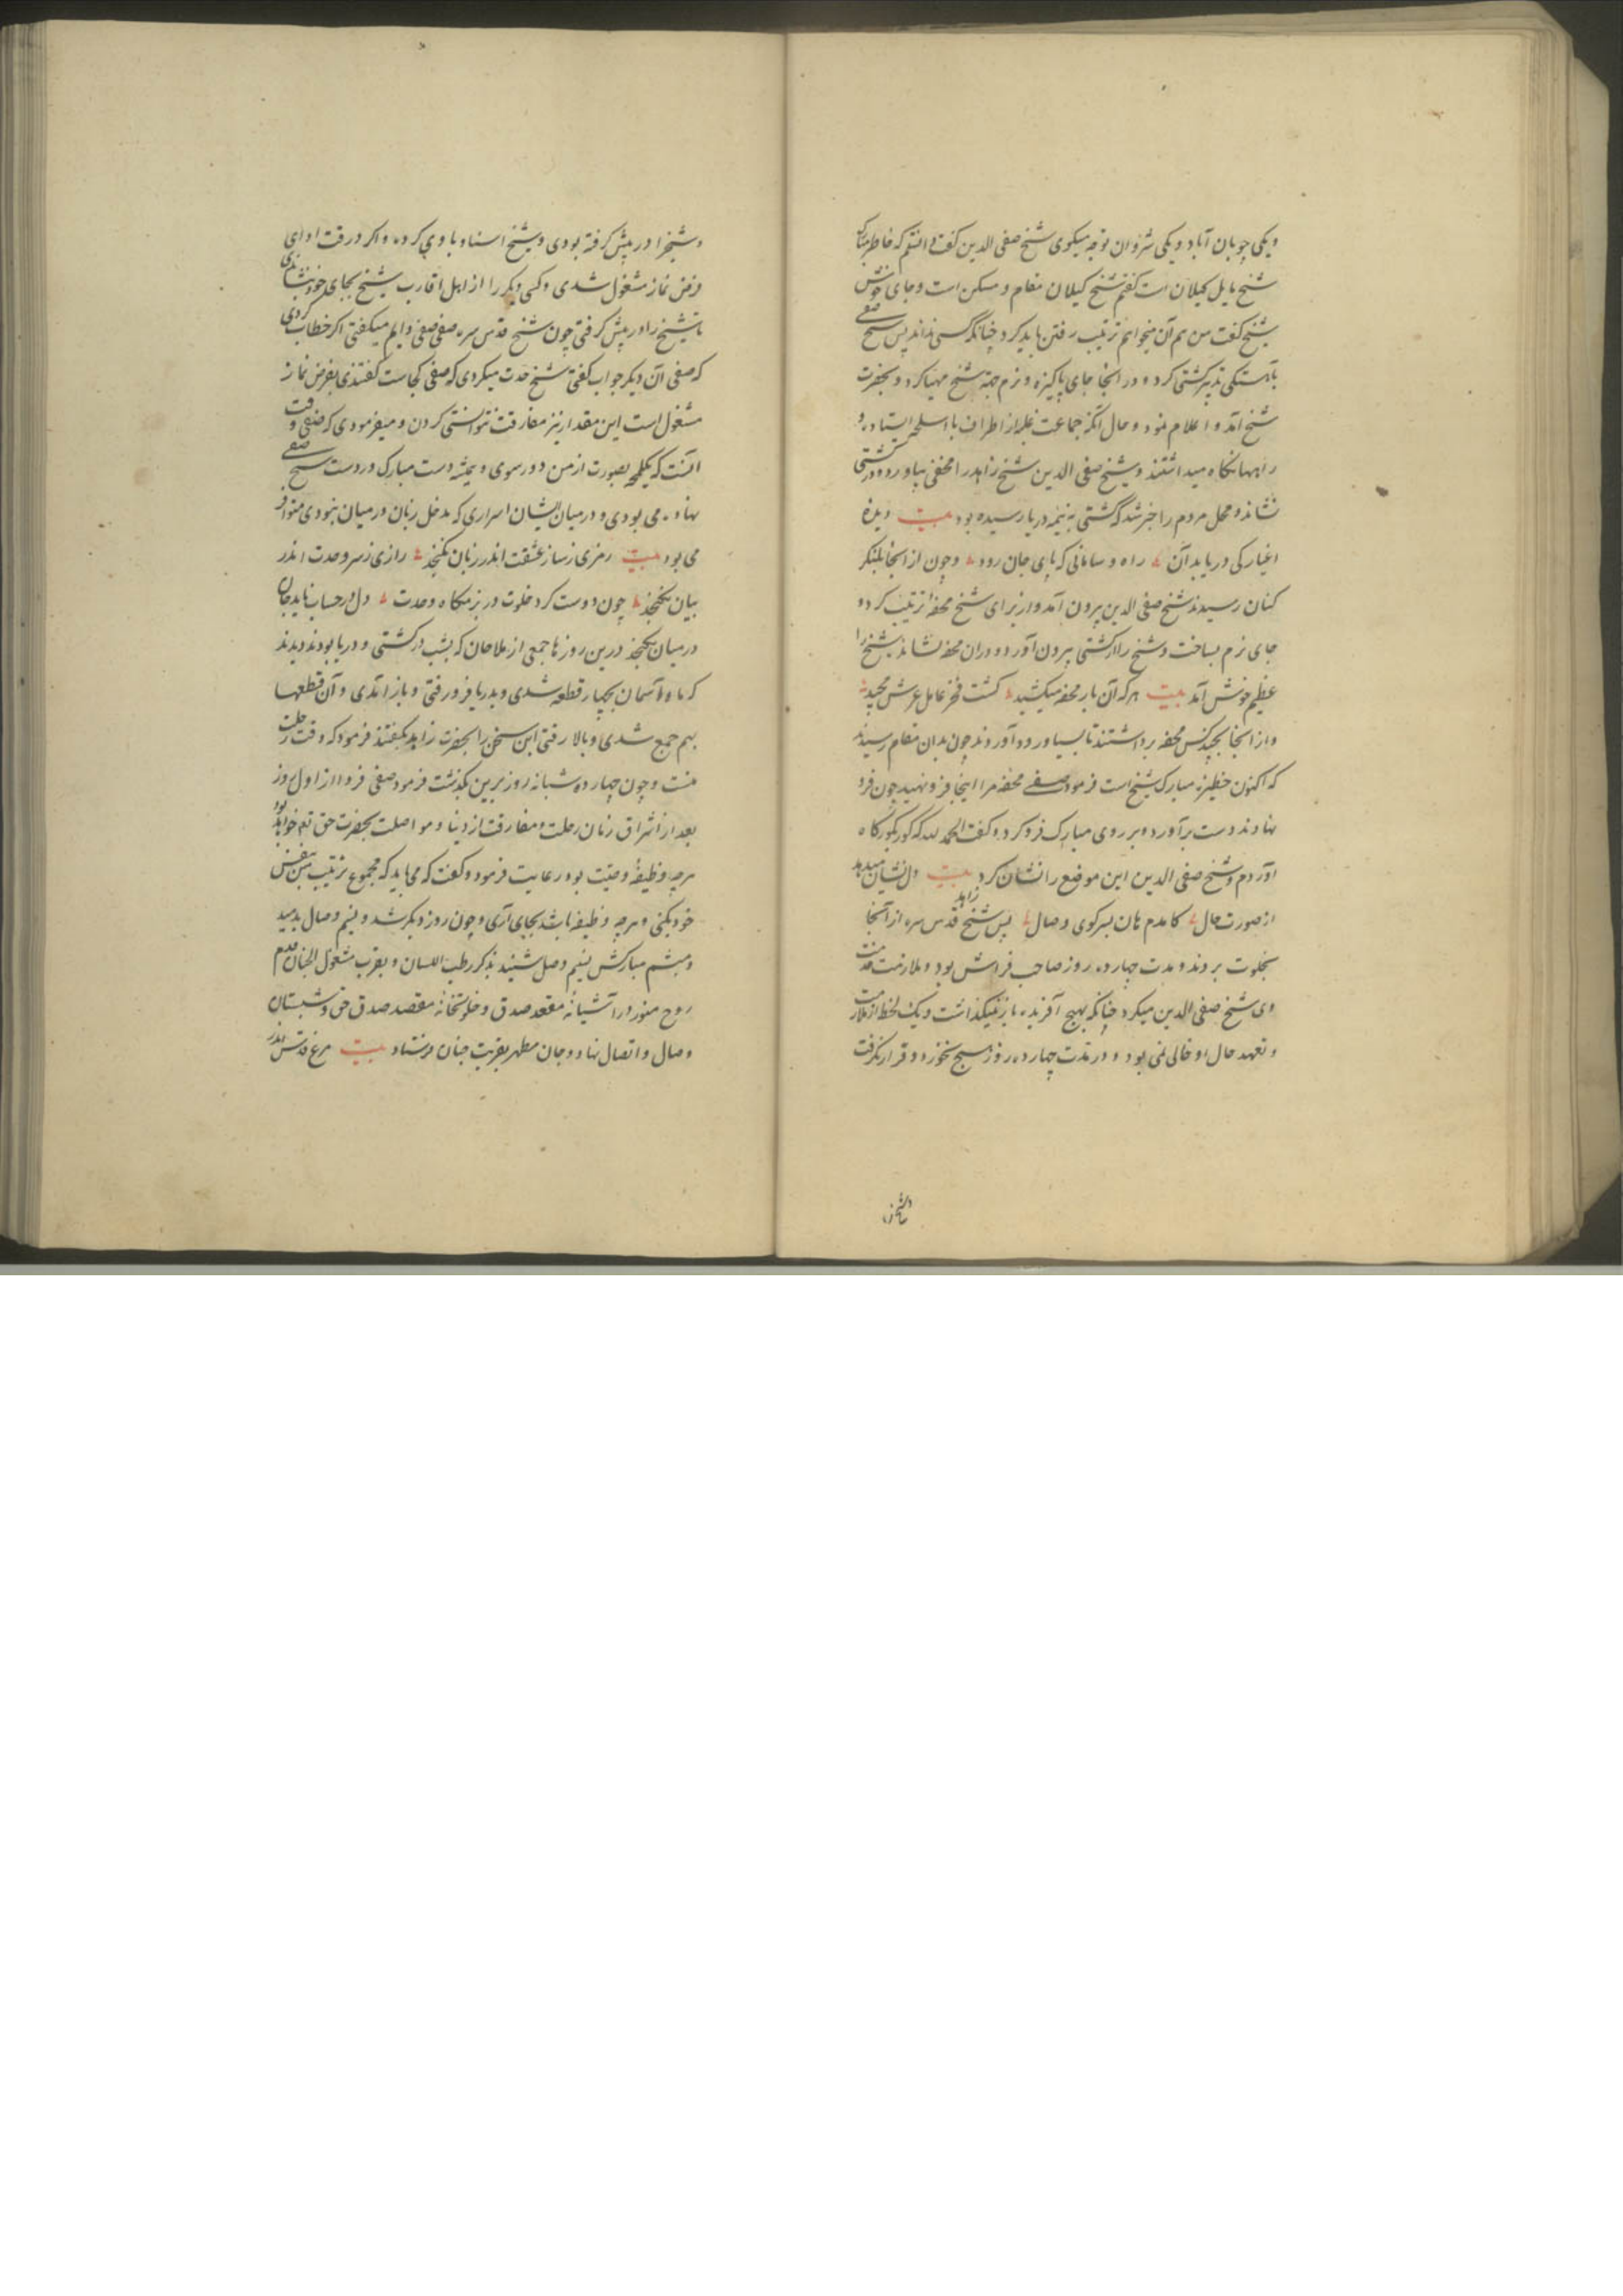 و یکی چوبان آباد و یکی شروان توجه میکوی شیخ صفی الدین گفت دانستم که خاطر مبارک
شیخ مایل کیلان است گفتم شیخ کیلان مقام و مسکن است و جای خوش
شیخ گفت من هم آن میخواهم ترتیب رفتن باید کرد چنانکه کسی نداند پس شیخ صفی
بآهستکی تدبیر کشتی کرد و در انجا جای پاکیزه و نرم جهة شیخ مهیا کرد و بحضرت
شیخ آمد و اعلام نمود و حال آنکه جماعت غلبه از اطراف با اسلحه ایستاده و
راهها نکاه میداشتند و شیخ صفی الدین شیخ زاهد را مخفی بیاورد و در کشتی
نشاند و محل مردم را خبر شد که کشتی به نیمه دریا رسیده بود بیت دیده
اغیار کی دریابد آن راه و سامانی که پای جان رود و چون از انجا بلنکر
کنان رسیدند شیخ صفی الدین بیرون آمد و از برای شیخ محفه ترتیب کرد و
جای نرم بساخت و شیخ را از کشتی بیرون آورد و در ان محفه نشاند شیخ را
عظیم خوش آمد بیت هر که آن بار محفه میکشید کشت فخر حامل عرش مجید
و از انجا بچند کس محفه برداشتند تا بسیاورود آوردند چون بدان مقام رسیدند
که اکنون حظیره مبارک شیخ است فرمود صفی محفه مرا اینجا فرو نهید چون فرو
نهادند دست برآورد و بر روی مبارک فرو کرد و گفت الحمد لله که کور بکورکاه
آوردم و شیخ صفی الدین این موضع را نشان کرد بیت دل نشان میدهد
از صورت حال کامدم هان بسر کوی وصال پس شیخ زاهد قدس سره از آنجا
بخلوت بردند و مدت چهارده روز صاحب فراش بود و ملازمت خدمت
وی شیخ صفی الدین میکرد چنانکه بهیچ آفریده باز نمیکذاشت و یک لحظه از ملازمت
و تعهد حال او خالی نمی بود و در مدت چهارده روز هیچ نخورد و قرار نکرفت
و شیخ را در پیش کرفته بودی و شیخ استناد با وی کرده و اکر در وقت ادای
فرض نماز مشغول شدی و کسی دیکر را از اهل اقارب شیخ بجای خود بنشاندی
تا شیخ را در پیش کرفتی چون شیخ قدس سره صفی صفی دایم میکفتی اکر خطاب کردی
که صفی آن دیکر جواب کفتی شیخ حدت میکردی که صفی کجاست کفتندی بفرض نماز
مشغول است این مقدار نیز مفارقت نتوانستی کردن و میفرمودی که صفی وقت
آنست که یکلمحه بصورت از من دور شوی و همیشه دست مبارک در دست شیخ صفی
نهاده می بودی و در میان ایشان اسراری که مدخل زبان در میان نبودی متواتر
می بود بیت رمزی ز ساز عشقت اندر زبان نکنجد رازی ز سر وحدت اندر
بیان نکنجد چون دوست کرد خلوت در بزمکاه وحدت دل در حساب ناید جان
در میان نکنجد درین روزها جمعی از ملاحان که بشب در کشتی و دریا بودند دیدند
که ماه آسمان بچهار قطعه شدی و بدریا فرو رفتی و باز آمدی و آن قطعها
بهم جمع شدی و بالا رفتی این سخن را بحضرت زاهد بکفتند فرمود که وقت رحلت
منست و چون چهارده شبانه روز برین بکذشت فرمود صفی فردا از اول روز
بعد از اشراق زمان رحلت و مفارقت از دنیا و مواصلت بحضرت حق تعم خواهد بود
هرچه وظیفه وصیت بود رعایت فرمود و گفت که می باید که مجموع ترتیب من بنفس
خود بکنی و هرچه وظیفه باشد بجای آری و چون روز دیکر شد و نسیم وصال بدمید
و بشم مبارکش نسیم وصل شنید بذکر رطیب اللسان و بقرب مشغول الجنان
روح منور را آشیانه مقعد صدق و خلوتخانه مقصد صدق حق و شبستان
وصال و اتصال نهاد و جان مطهر بقربت جنان فرستاد بیت مرغ قدس اندر